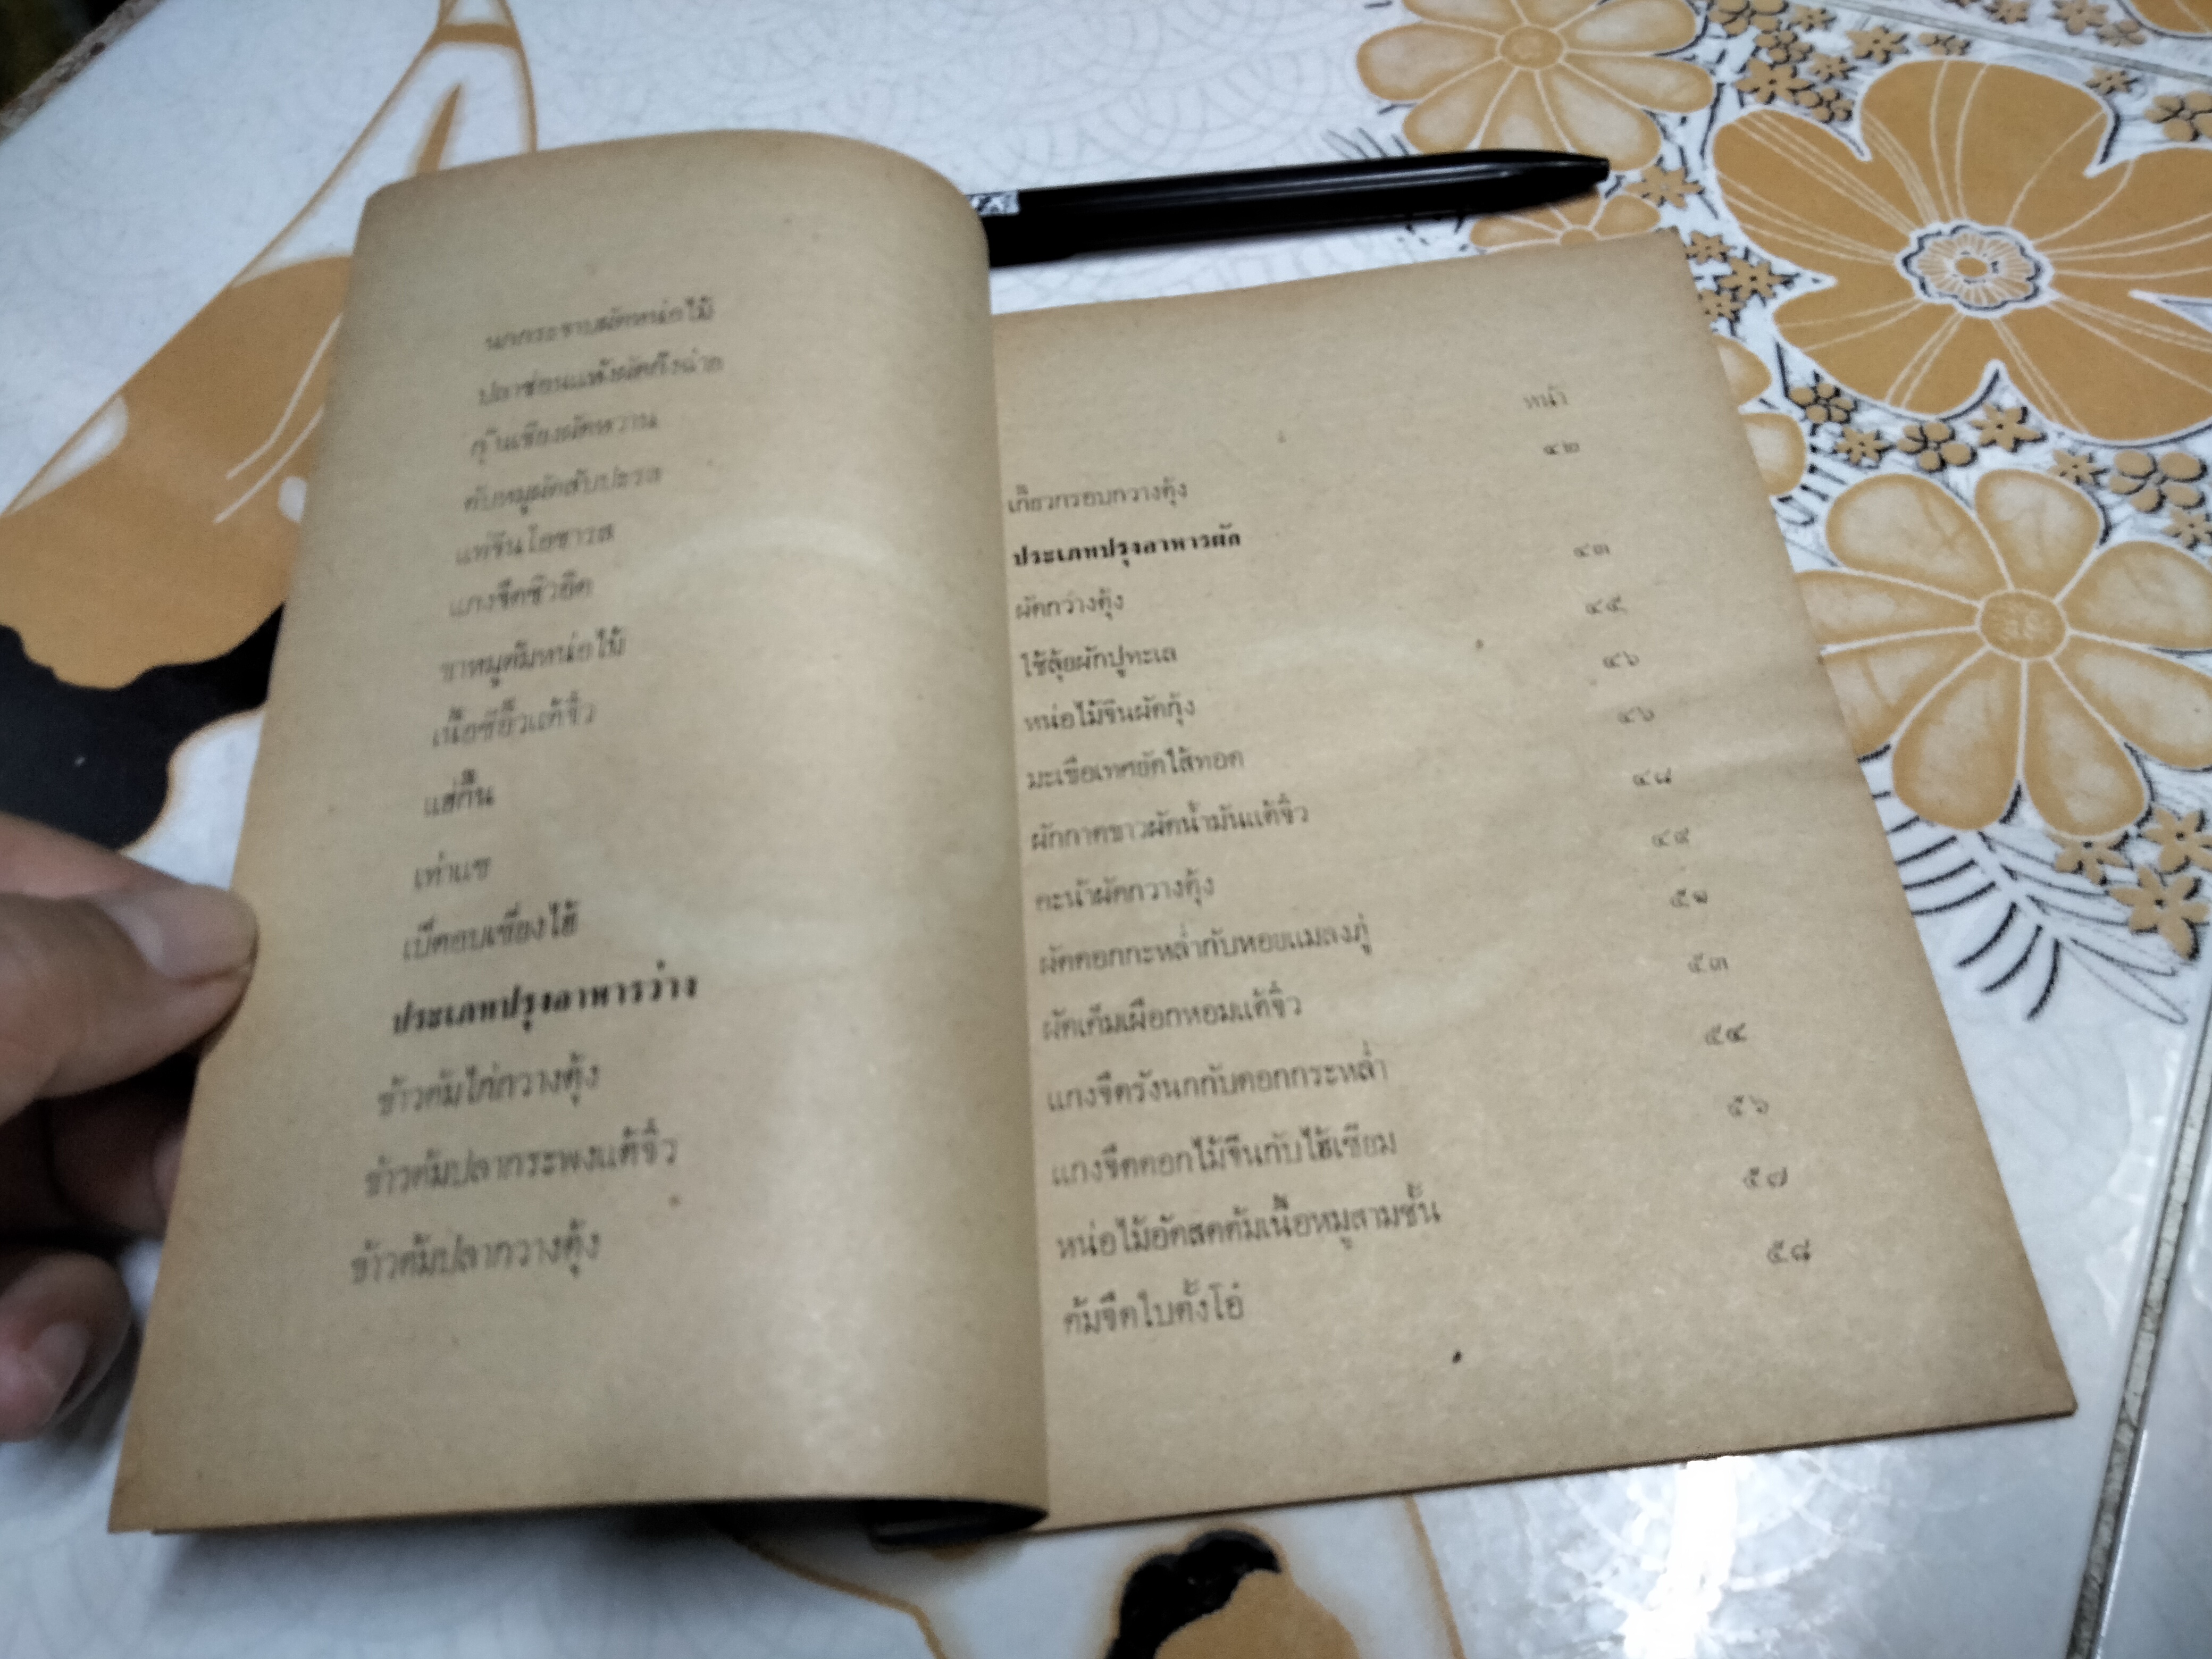 นกกระจาบผัดหน่อไม้
ปลาช่อนแห้งผัดกึงฉ่าย
กุนเชียงผัดหวาน
ตับหมูผัดสับปะรด
แฮ่จีนโอชารส
แกงจืด
ขาหมูต้มหน่อไม้
เนื้อซีอิ๊วแต้จิ๋ว
แฮ่กึ๊น
เป็ดอบเซี่ยงไฮ้
ประเภทปรุงอาหารว่าง
ข้าวต้มไก่กวางตุ้ง
ข้าวต้มปลากระพงแต้จิ๋ว
ข้าวต้มปลากวางตุ้ง
หน้า
เกี๊ยวกรอบกวางตุ้ง ๔๒
ประเภทปรุงอาหารผัก
ผัดกวางตุ้ง ๔๓
ใช้ลุ้ยผักปูทะเล ๔๕
หน่อไม้จีนผัดกุ้ง ๔๖
มะเขือเทศยัดไส้ทอด ๔๖
ผักกาดขาวผัดน้ำมันแต้จิ๋ว ๔๘
คะน้าผัดกวางตุ้ง ๔๙
ผัดดอกกะหล่ำกับหอยแมลงภู่ ๕๑
ผัดเค็มเผือกหอมแต้จิ๋ว ๕๓
แกงจืดรังนกกับดอกกระหล่ำ ๕๔
แกงจืดดอกไม้จีนกับไฮ้เซียม ๕๖
หน่อไม้อัดสดต้มเนื้อหมูสามชั้น ๕๗
ต้มจืดใบตั้งโอ๋ ๕๘